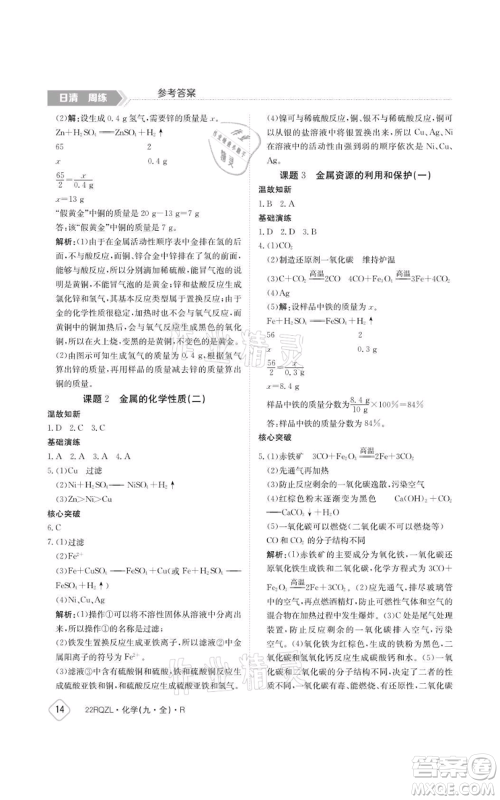 日清 周练
参考答案
(2)解:设生成0.4 g氢气,需要锌的质量为x。
Zn+H₂SO₄══ZnSO₄+H₂↑
65 2
x 0.4 g
65/2=x/0.4 g
x=13 g
“假黄金”中铜的质量是20 g-13 g=7 g
答:该“假黄金”中铜的质量是7 g。
解析:(1)由于在金属活动性顺序表中锌排在氢的前面,而铜排在氢的后面,锌合金中锌能与稀盐酸、稀硫酸发生反应,能置换出氢,能与稀盐酸反应生成氯化锌和氢气,与稀硫酸反应生成硫酸锌和氢气,而黄铜中的铜不能与稀盐酸和稀硫酸反应,由于铜的化学性质活泼,加热时,会与氧气反应生成黑色的氧化铜,而黄金不会与氧气反应,不变色。
(2)质量减少0.4 g,就是生成氢气的质量,根据氢气的质量可求锌的质量,再用样品的质量减去锌的质量就是铜的质量。
课题2 金属的化学性质(二)
温故知新
1. D 2. C
基础演练
1. B 2. A 3. A 4. A
5. (1)Cu 过滤
(2)Ni+H₂SO₄══NiSO₄+H₂↑
核心突破
6. C
7. (1)过滤
(2)Fe²⁺
(3)Fe+CuSO₄══FeSO₄+Cu Fe+H₂SO₄══FeSO₄+H₂↑
解析:(1)操作①可以将固体与液体分离,所以操作①为过滤。
(2)铁发生置换反应生成亚铁离子,所以溶液甲中金属阳离子的符号为Fe²⁺。
(3)过滤后的溶液中加入过量的铁粉,硫酸铜、硫酸与铁反应生成硫酸亚铁和铜、硫酸亚铁和氢气。
(4)镍可与稀硫酸反应,而铜不能与稀硫酸反应,铜可以从银的盐溶液中置换出银,所以Cu、Ag、Ni的金属活动性由强到弱的顺序是Ni、Cu、Ag。
课题3 金属资源的利用和保护(一)
温故知新
1. B 2. A
基础演练
1. D 2. D 3. C
4. (1)CO₂
(2)制造还原剂一氧化碳 维持炉温
(3)C+CO₂══高温══2CO 4CO+Fe₃O₄══高温══3Fe+4CO₂
(4)Ag
(5)解:设样品中铁的质量为x。
Fe+H₂SO₄══FeSO₄+H₂↑
56 2
x 0.3 g
56/2=x/0.3 g
x=8.4 g
样品中铁的质量分数=8.4 g/10 g×100%=84%
答:样品中铁的质量分数为84%。
核心突破
5. (1)赤铁矿 3CO+Fe₂O₃══高温══2Fe+3CO₂
(2)先通气再点燃
(3)防止反应剩余的一氧化碳逸散,污染空气
(4)红棕色粉末逐渐变黑 Ca(OH)₂+CO₂══CaCO₃↓+H₂O
(5)一氧化碳可以燃烧(二氧化碳不可燃烧)
CO和CO₂的分子构成不同
解析:(1)赤铁矿的主要成分是氧化铁,一氧化碳和氧化铁在高温的条件下反应生成铁和二氧化碳,化学方程式为3CO+Fe₂O₃══高温══2Fe+3CO₂。(2)实验时应先通入一氧化碳,排尽玻璃管内的空气,然后再点燃酒精喷灯,防止一氧化碳与空气的混合物在加热时发生爆炸。(3)a处点燃的目的是防止反应剩余的一氧化碳逸散,污染空气。(4)一氧化碳具有还原性,高温下能与氧化铁反应,生成铁粉为黑色,二氧化碳和氢氧化钙反应生成碳酸钙和水。(5)一氧化碳和二氧化碳的化学性质的差异为一氧化碳可以燃烧,二氧化碳不可燃烧,造成这种差异的原因是CO和CO₂的分子构成不同。
14
22RQZL·化学(九·全)·R